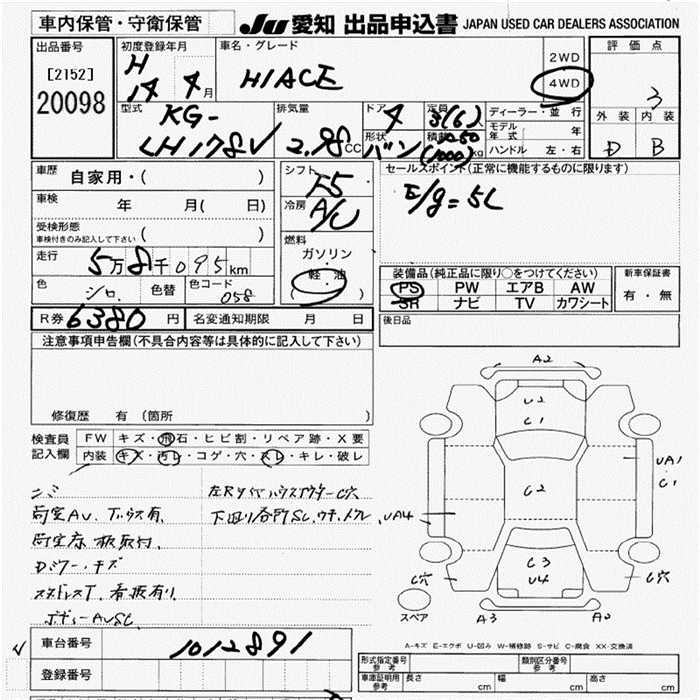 車内保管・守衛保管
JU 愛知 出品申込書 JAPAN USED CAR DEALERS ASSOCIATION
出品番号
[2152]
20098
初度登録年月
H
14 4月
車名・グレード
HIACE
2WD
4WD
評価点
3
外装 内装
D B
型式
KG-
LH178V
排気量
2.98CC
ドア
4
形状
バン
定員
3(6)
積載
1050
(1000)kg
ディーラー・並行
モデル年式 年
ハンドル 左・右
車歴
自家用・( )
車検
年 月( 日)
受検形態
車検付きのみ記入して下さい ( )
走行
5万8千095km
色
シロ 色替
色コード
058
シフト
F5
冷房
A/C
燃料
ガソリン
軽・油
( )
セールスポイント(正常に機能するものに限ります)
E/g=5L
装備品(純正品に限り○をつけてください)
PS PW エアB AW
SR ナビ TV カワシート
新車保証書
有・無
R券 6380円 名変通知期限 月 日
後日品
注意事項申告欄(不具合内容等は具体的に記入して下さい)
修復歴 有(箇所 )
検査員
記入欄
FW キズ・飛石・ヒビ割・リペア跡・X要
内装 キズ・汚レ・コゲ・穴・スレ・キレ・破レ
A2
U2
C1
UA1
C1
C2
UA4
C3
U4
C穴
C穴
A3
スペア
A-キズ E-エクボ U-凹み W-補修跡 S-サビ C-腐食 XX-交換済
車台番号
1012891
登録番号
形式指定番号
参考
類別区分番号
参考
車庫証明用
参考
長さ cm
幅 cm
高さ cm